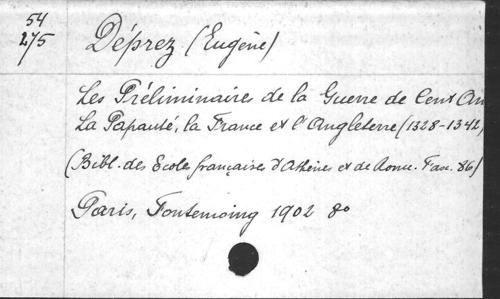 54
275
Déprez (Eugène)
Les Préliminaires de la Guerre de Cent An
La Papauté, la France et l'Angleterre (1328-1342)
(Bibl. des Ecoles françaises d'Athènes et de Rome. Fasc. 86)
Paris, Fontemoing 1902 8o